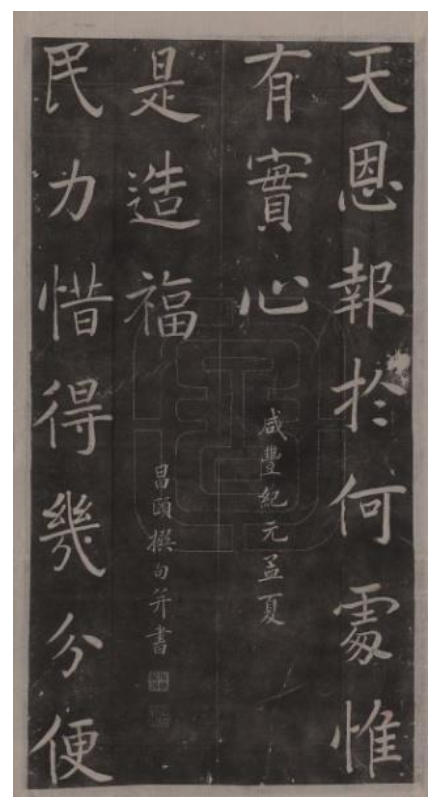 天恩報於何處惟
有實心
咸豐紀元孟夏
民力惜得幾分便
是造福
昌頤撰句并書